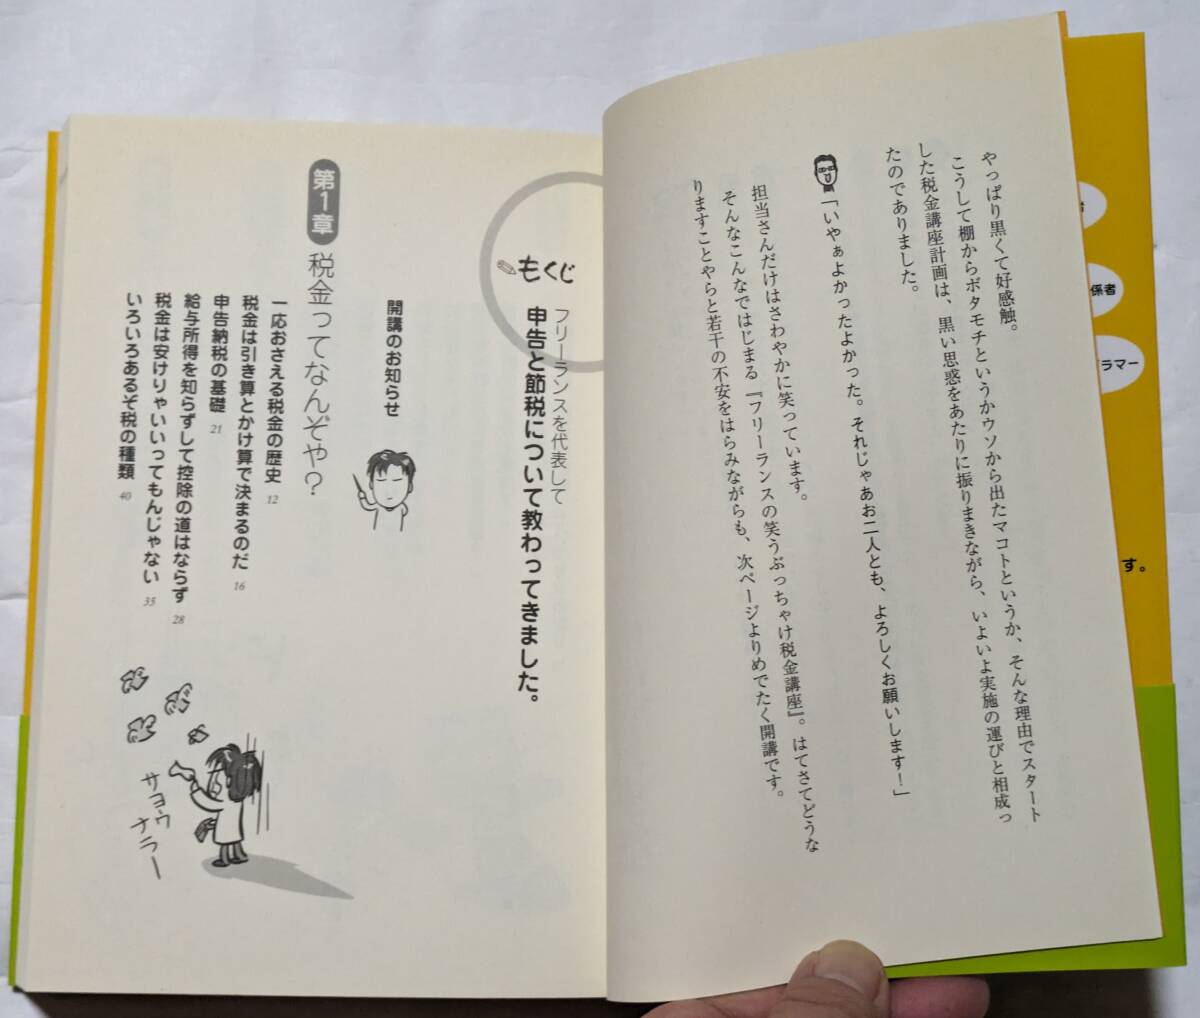 やっぱり黒くて好感触。
こうして棚からボタモチというかウソから出たマコトというか、そんな理由でスタート
した税金講座計画は、黒い思惑をあたりに振りまきながら、いよいよ実施の運びと相成っ
たのでありました。
「いやぁよかったよかった。それじゃあお二人とも、よろしくお願いします！」
担当さんだけはさわやかに笑っています。
そんなこんなではじまる『フリーランスの笑うぶっちゃけ税金講座』。はてさてどうな
りますことやらと若干の不安をはらみながらも、次ページよりめでたく開講です。
係者
ラマー
す。
もくじ
フリーランスを代表して
申告と節税について教わってきました。
開講のお知らせ
第1章 税金ってなんぞや？
一応おさえる税金の歴史 12
税金は引き算とかけ算で決まるのだ 16
申告納税の基礎 21
給与所得を知らずして控除の道はならず 28
税金は安けりゃいいってもんじゃない 35
いろいろあるぞ税の種類 40
サヨウ
ナラー